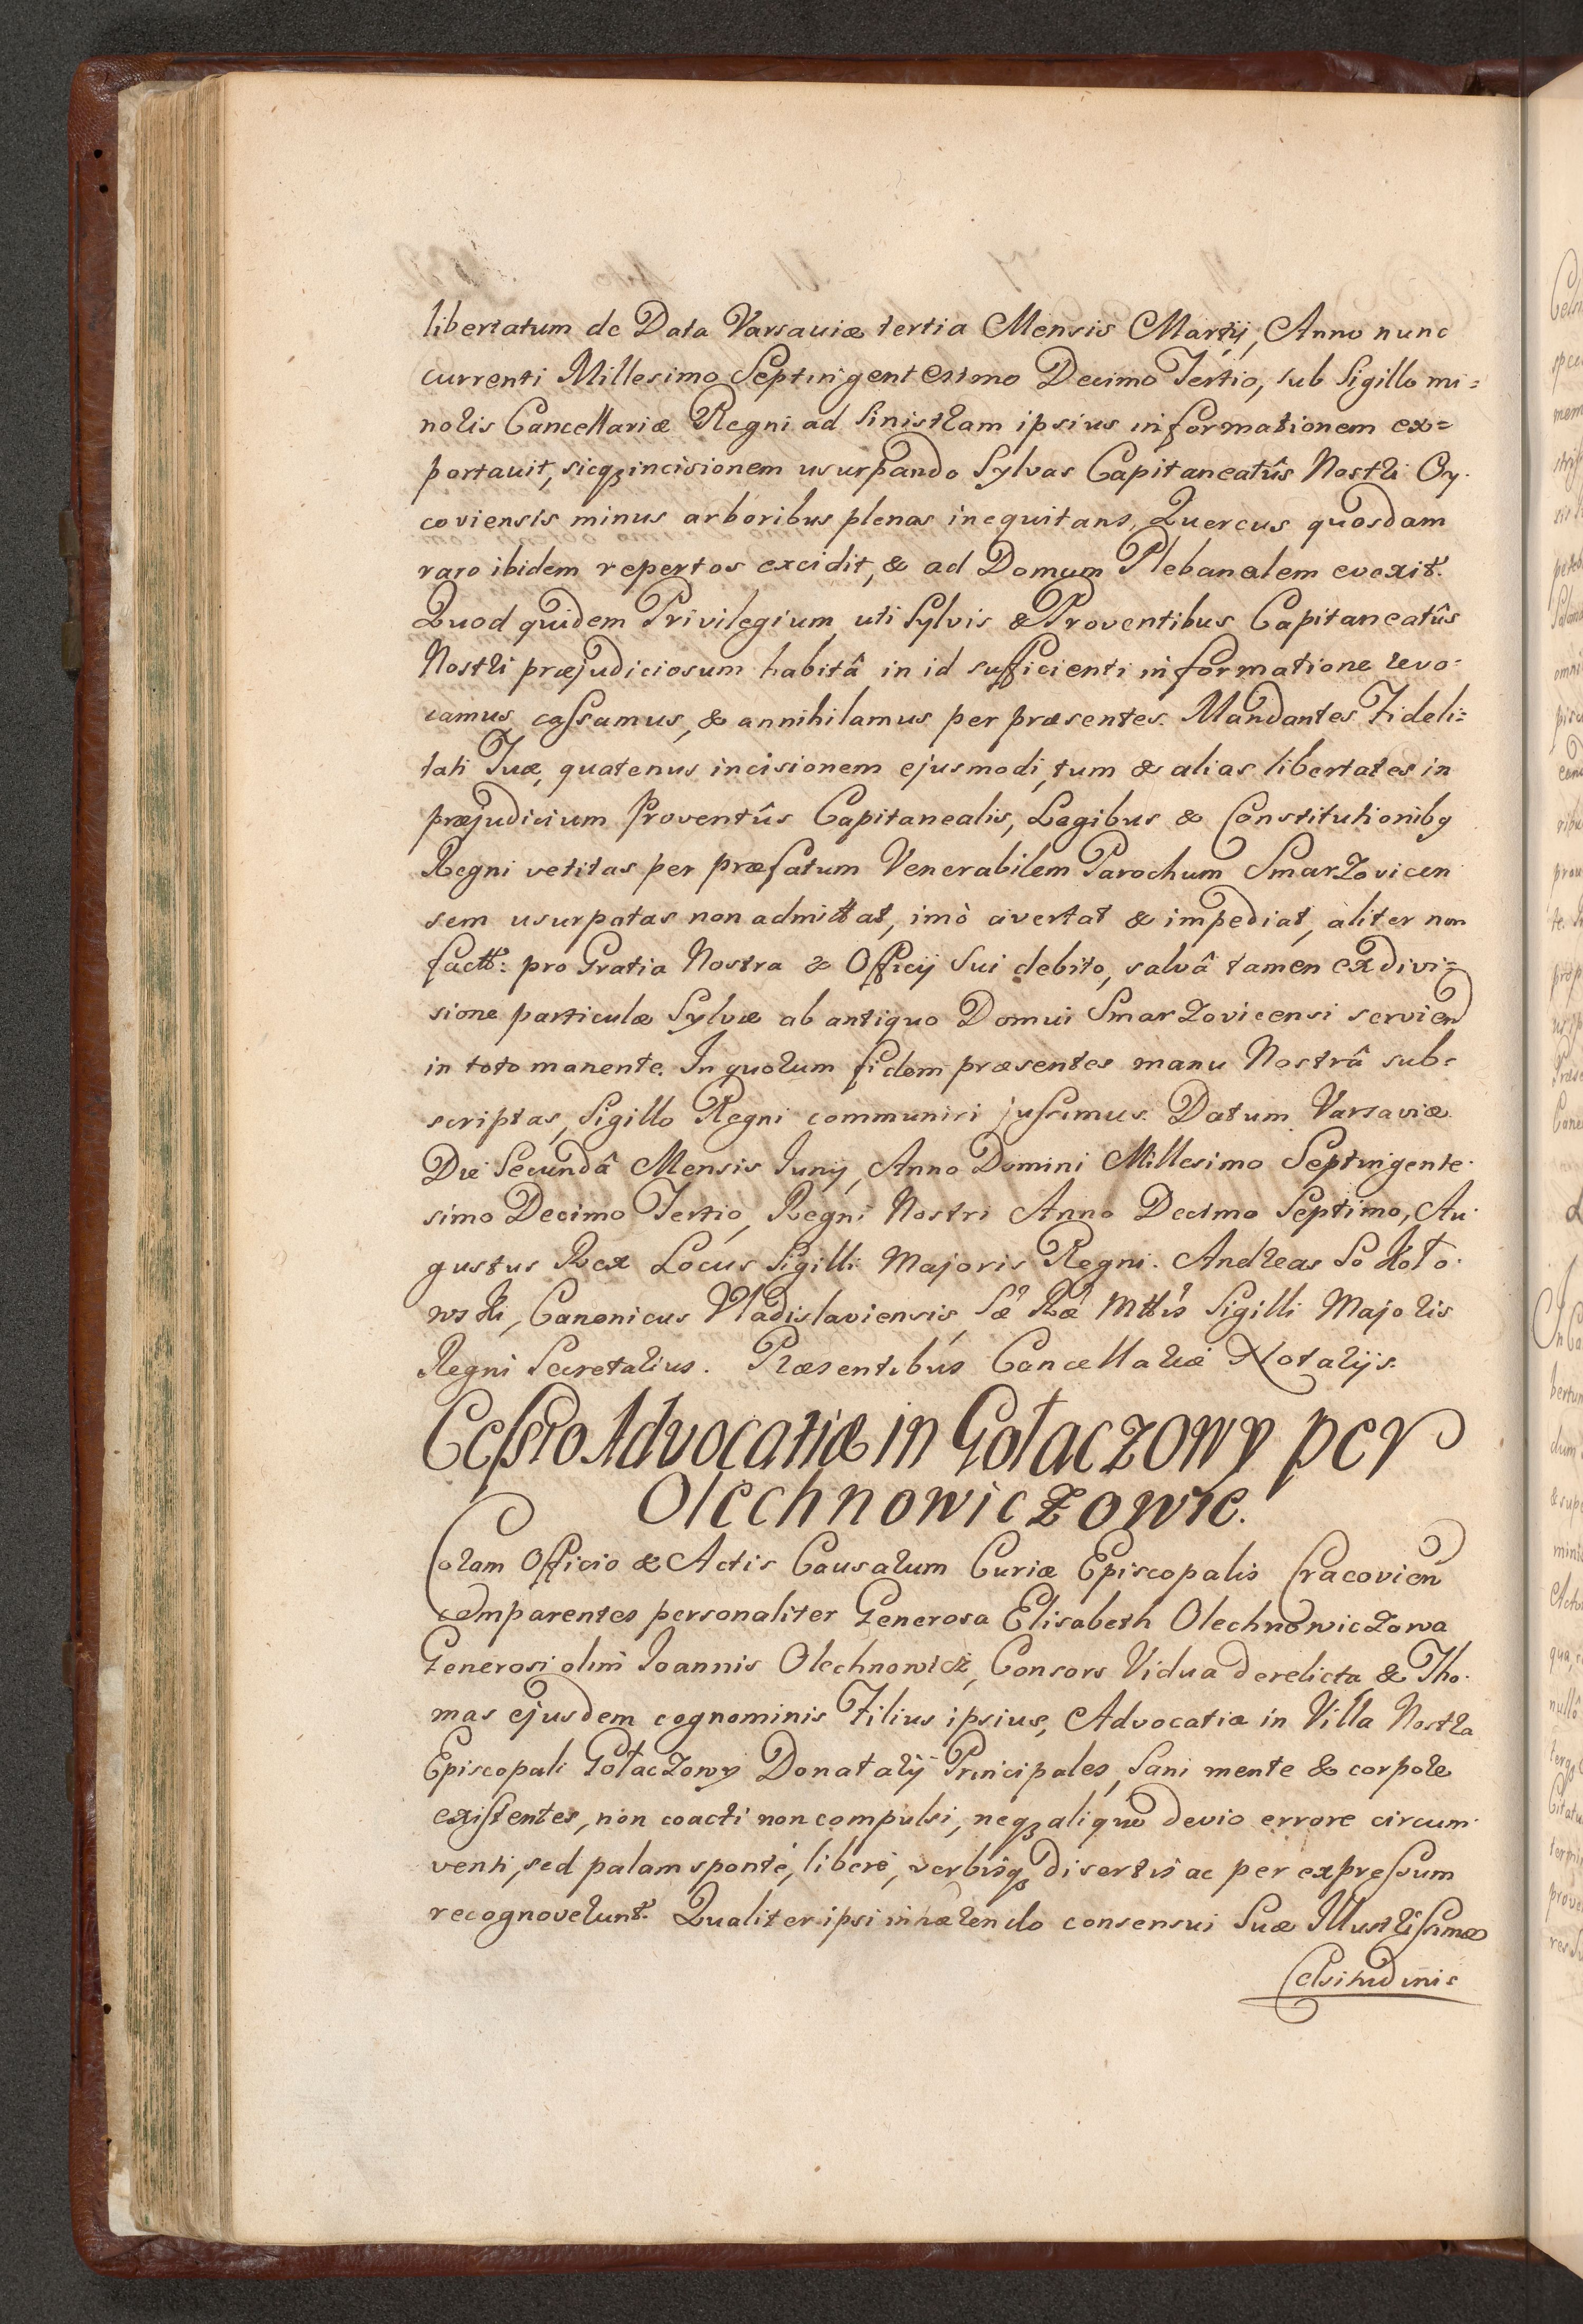 libertatum de Data Varsaviæ tertia Mensis Martij, Anno nunc
currenti Millesimo Septingentesimo Decimo Tertio, sub Sigillo mi=
noris Cancellariæ Regni ad Sinistram ipsius informationem ex=
portauit, sicq₃ incisionem usurpando Sylvas Capitaneatûs Nostri Oy-
coviensis minus arboribus plenas inequitans, Quercus quosdam
raro ibidem repertos excidit, & ad Domum Plebanalem evexit.
Quod quidem Privilegium, uti Sylvis & Proventibus Capitaneatûs
Nostri præjudiciosum habitâ in id sufficienti informatione revo-
camus, cassamus, & annihilamus per præsentes. Mandantes Fideli=
tati Tuæ, quatenus incisionem ejusmodi, tum & alias libertates in
præjudicium Proventûs Capitanealis, Legibus & Constitutionibq
Regni vetitas per præfatum Venerabilem Parochum Smarzovicen
sem usurpatas non admittat, imò avertat & impediat, aliter non
factt: pro Gratia Nostra & Officij Sui debito, salvâ tamen ex divi=
sione particulæ Sylvæ ab antiquo Domui Smarzovicensi servien
in toto manente. In quorum fidem præsentes manu Nostrâ sub-
scriptas, Sigillo Regni communiri jussimus. Datum Varsaviæ
Die Secundâ Mensis Junij, Anno Domini Millesimo Septingente-
simo Decimo Tertio, Regni Nostri Anno Decimo Septimo, Au-
gustus Rex Locus Sigilli Majoris Regni. Andreas Sokoło-
wski, Canonicus Vladislaviensis, Sæ Ræ Mttis Sigilli Majoris
Regni Secretarius. Præsentibus Cancellariæ Notarijs.
Cessio Advocatiæ in Gołaczowy per
Olechnowiczowie.
Coram Officio & Actis Causarum Curiæ Episcopalis Cracovien
comparentes personaliter Generosa Elisabeth Olechnowiczowa
Generosi olim Joannis Olechnowicz, Consors Vidua derelicta & Tho-
mas ejusdem cognominis Filius ipsius, Advocatiæ in Villa Nostra
Episcopali Gołaczowy Donatarij Principales, Sani mente & corpore
existentes, non coacti non compulsi, neq₃ aliquo devio errore circum-
venti, sed palam sponté, liberé, verbisq₃ disertis ac per expressum
recognoverunt. Qualiter ipsi inhærendo consensui Suæ Illustrissimæ
Celsitudinis